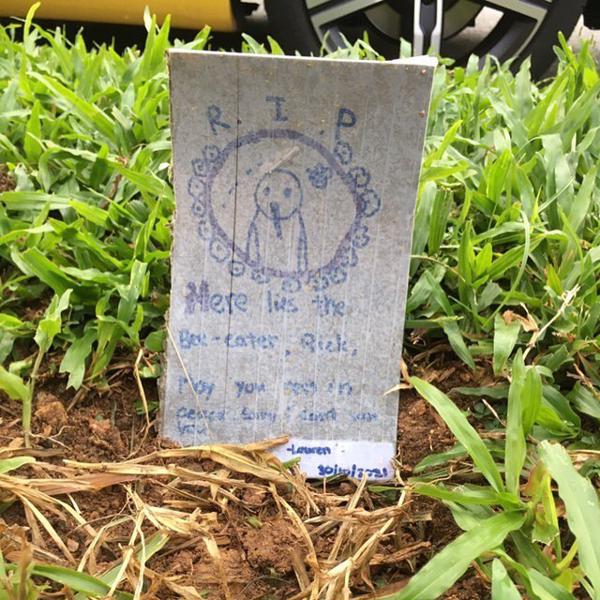 R I P
Here lies the
Bee-eater, Rick,
May you rest in
peace. Sorry I didn't save
you
-Lauren
30/10/2021